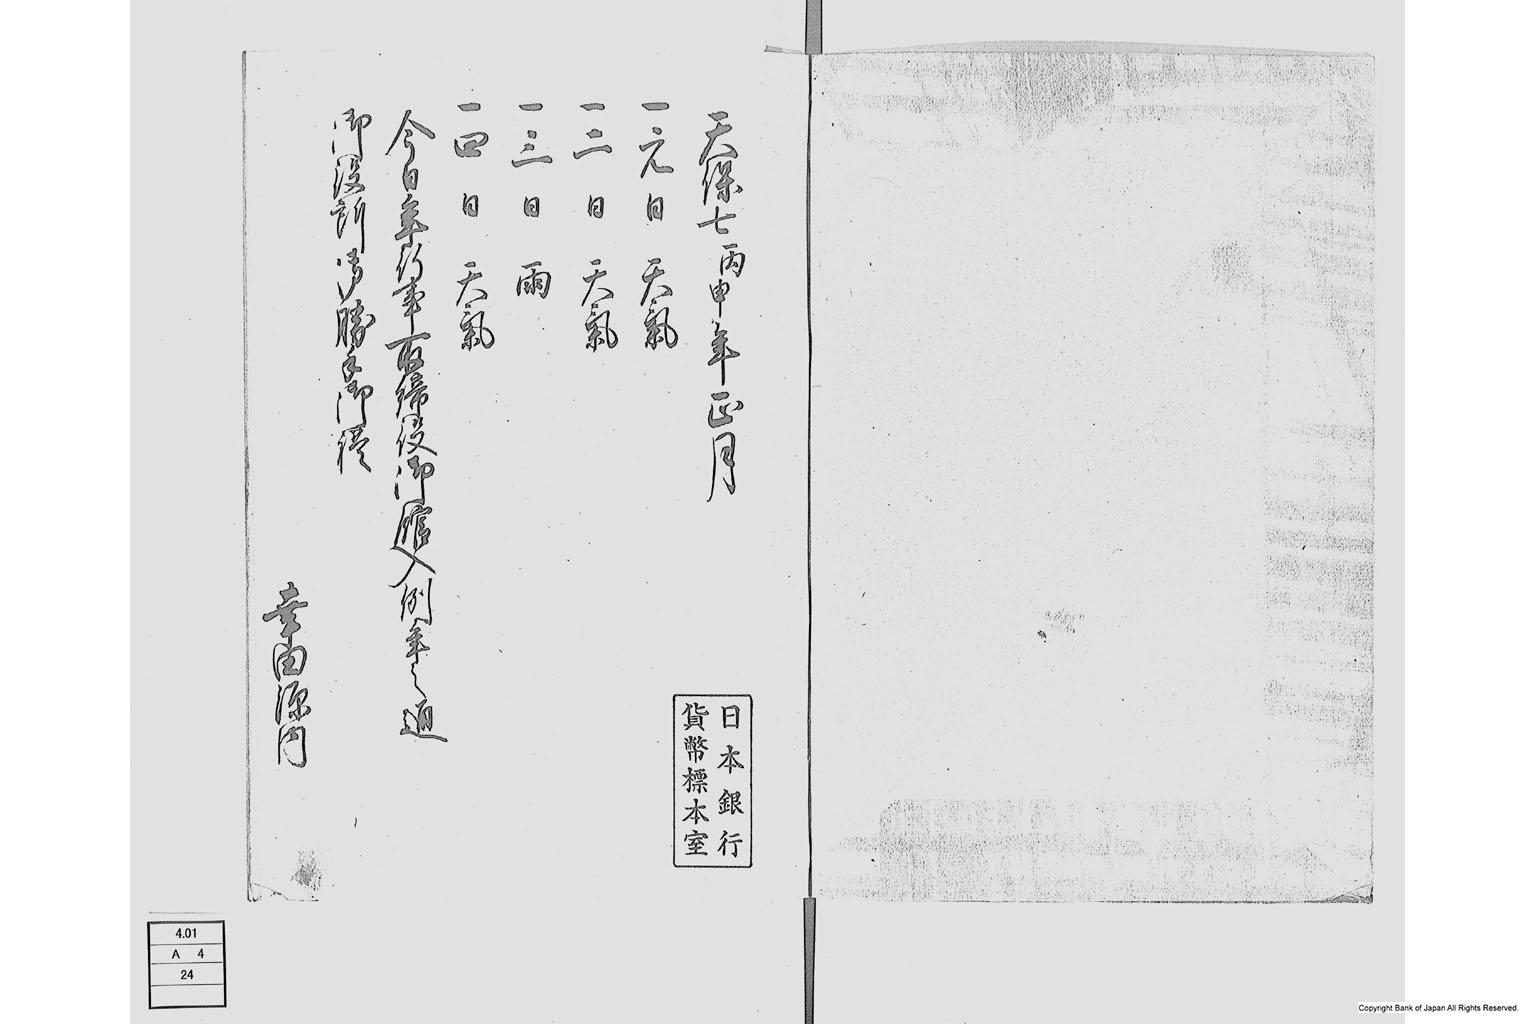 天保七丙申年正月
一元日 天氣
一二日 天氣
一三日 雨
一四日 天氣
今日年行事取締役御館入例年之通
御役所御勝手御礼
幸田源内
日本銀行
貨幣標本室
4.01
A 4
24
Copyright Bank of Japan All Rights Reserved.